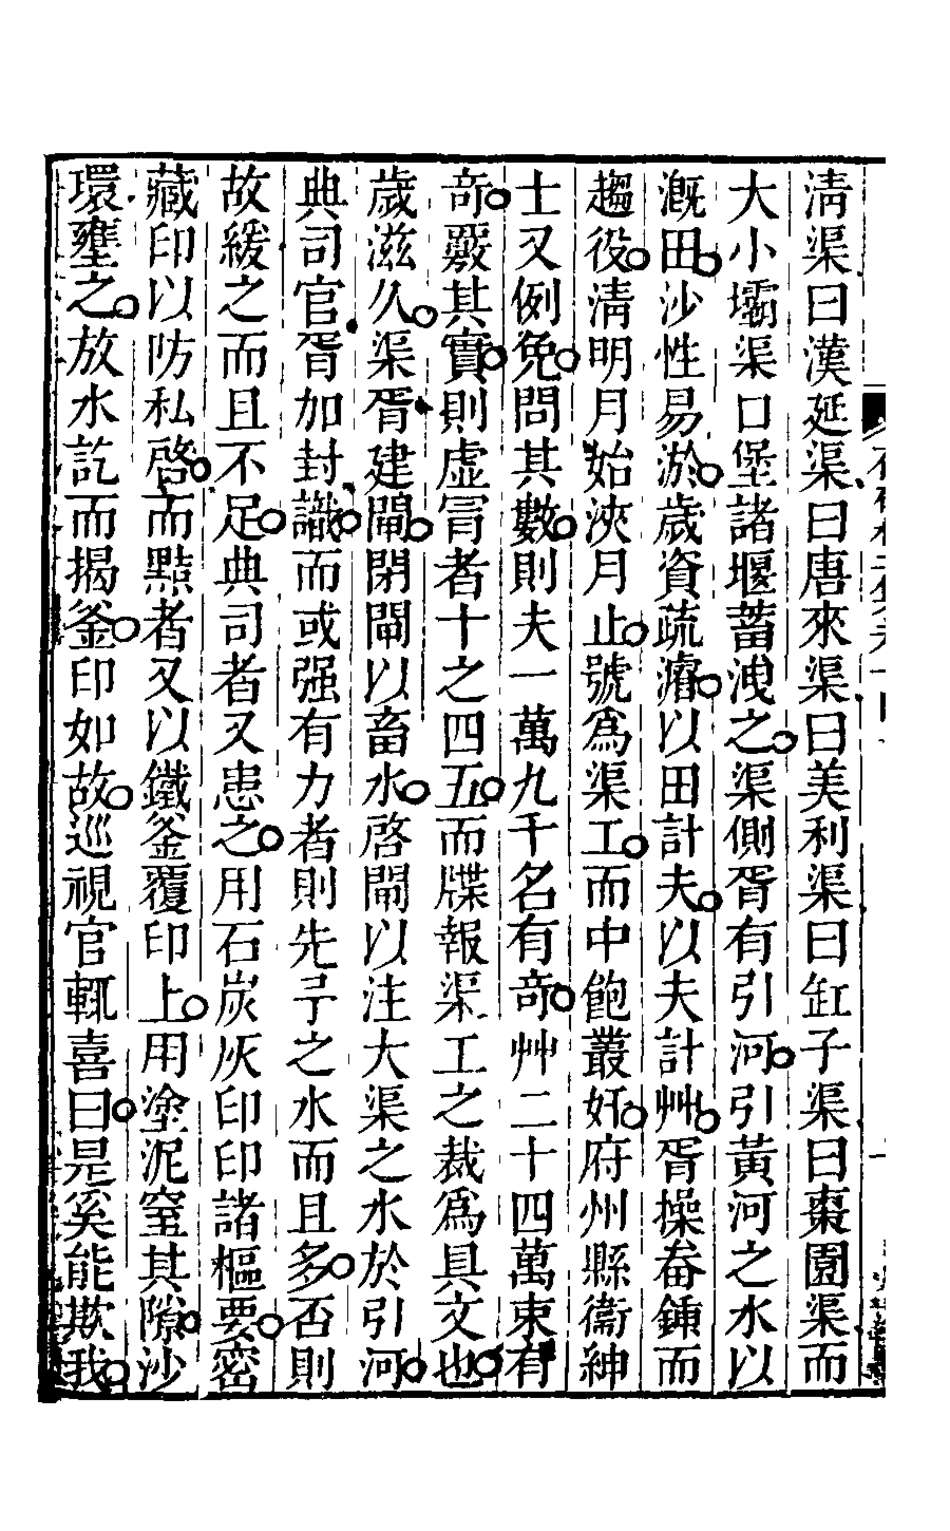 清渠曰漢延渠曰唐來渠曰美利渠曰缸子渠曰棗園渠而
大小壩渠口堡諸堰蓄洩之渠側胥有引河引黃河之水以
溉田沙性易淤歲資疏濬以田計夫以夫計艸胥操畚鍤而
趨役清明月始浹月止號爲渠工而中飽叢奸府州縣衞紳
士又例免問其數則夫一萬九千名有奇艸二十四萬束有
奇覈其實則虛冐者十之四五而牒報渠工之裁爲具文也
歲滋久渠胥建閘閉閘以畜水啓閘以注大渠之水於引河
典司官胥加封識而或强有力者則先予之水而且多否則
故緩之而且不足典司者又患之用石炭灰印印諸樞要密
藏印以防私啓而黠者又以鐵釜覆印上用塗泥窒其隙沙
環壅之放水訖而揭釜印如故巡視官輒喜曰是奚能欺我